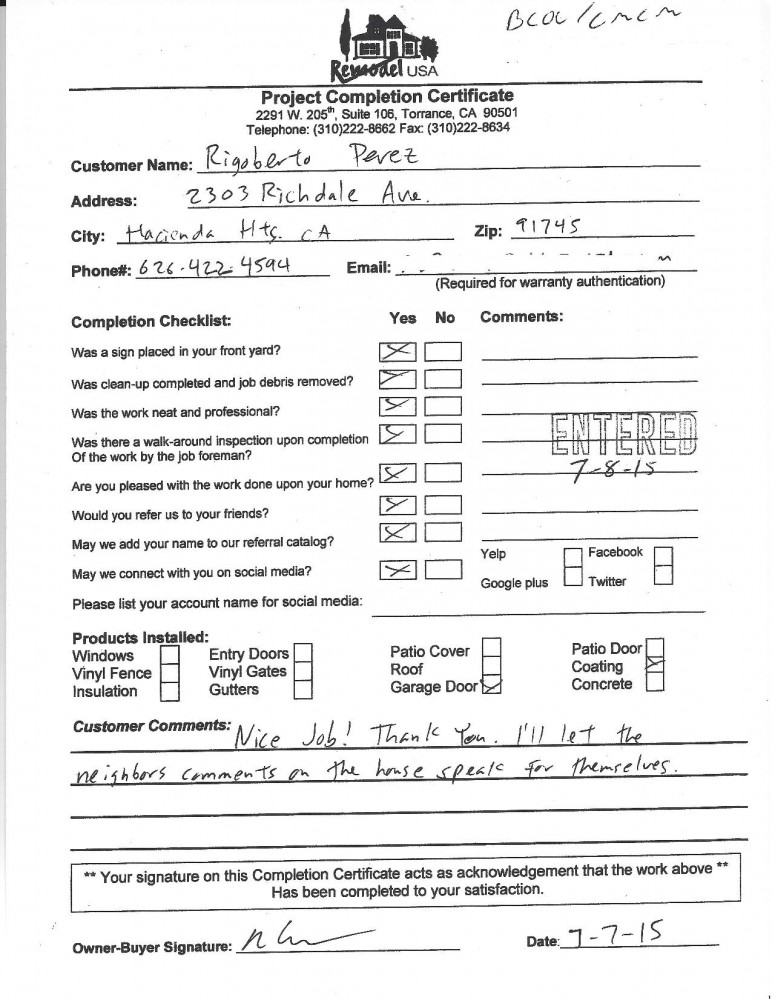 BCOC / CMCM
Remodel USA
Project Completion Certificate
2291 W. 205th, Suite 106, Torrance, CA 90501
Telephone: (310)222-8662 Fax: (310)222-8634
Customer Name: Rigoberto Perez
Address: 2303 Richdale Ave.
City: Hacienda Hts. CA Zip: 91745
Phone#: 626-422-4594 Email:
(Required for warranty authentication)
Completion Checklist: Yes No Comments:
Was a sign placed in your front yard?
Was clean-up completed and job debris removed?
Was the work neat and professional?
Was there a walk-around inspection upon completion
Of the work by the job foreman?
ENTERED
7-8-15
Are you pleased with the work done upon your home?
Would you refer us to your friends?
May we add your name to our referral catalog?
Yelp Facebook
May we connect with you on social media?
Google plus Twitter
Please list your account name for social media:
Products Installed:
Windows Entry Doors Patio Cover Patio Door
Vinyl Fence Vinyl Gates Roof Coating
Insulation Gutters Garage Door Concrete
Customer Comments: Nice Job! Thank You. I'll let the
neighbors comments on the house speak for themselves.
** Your signature on this Completion Certificate acts as acknowledgement that the work above **
Has been completed to your satisfaction.
Owner-Buyer Signature:
Date: 7-7-15